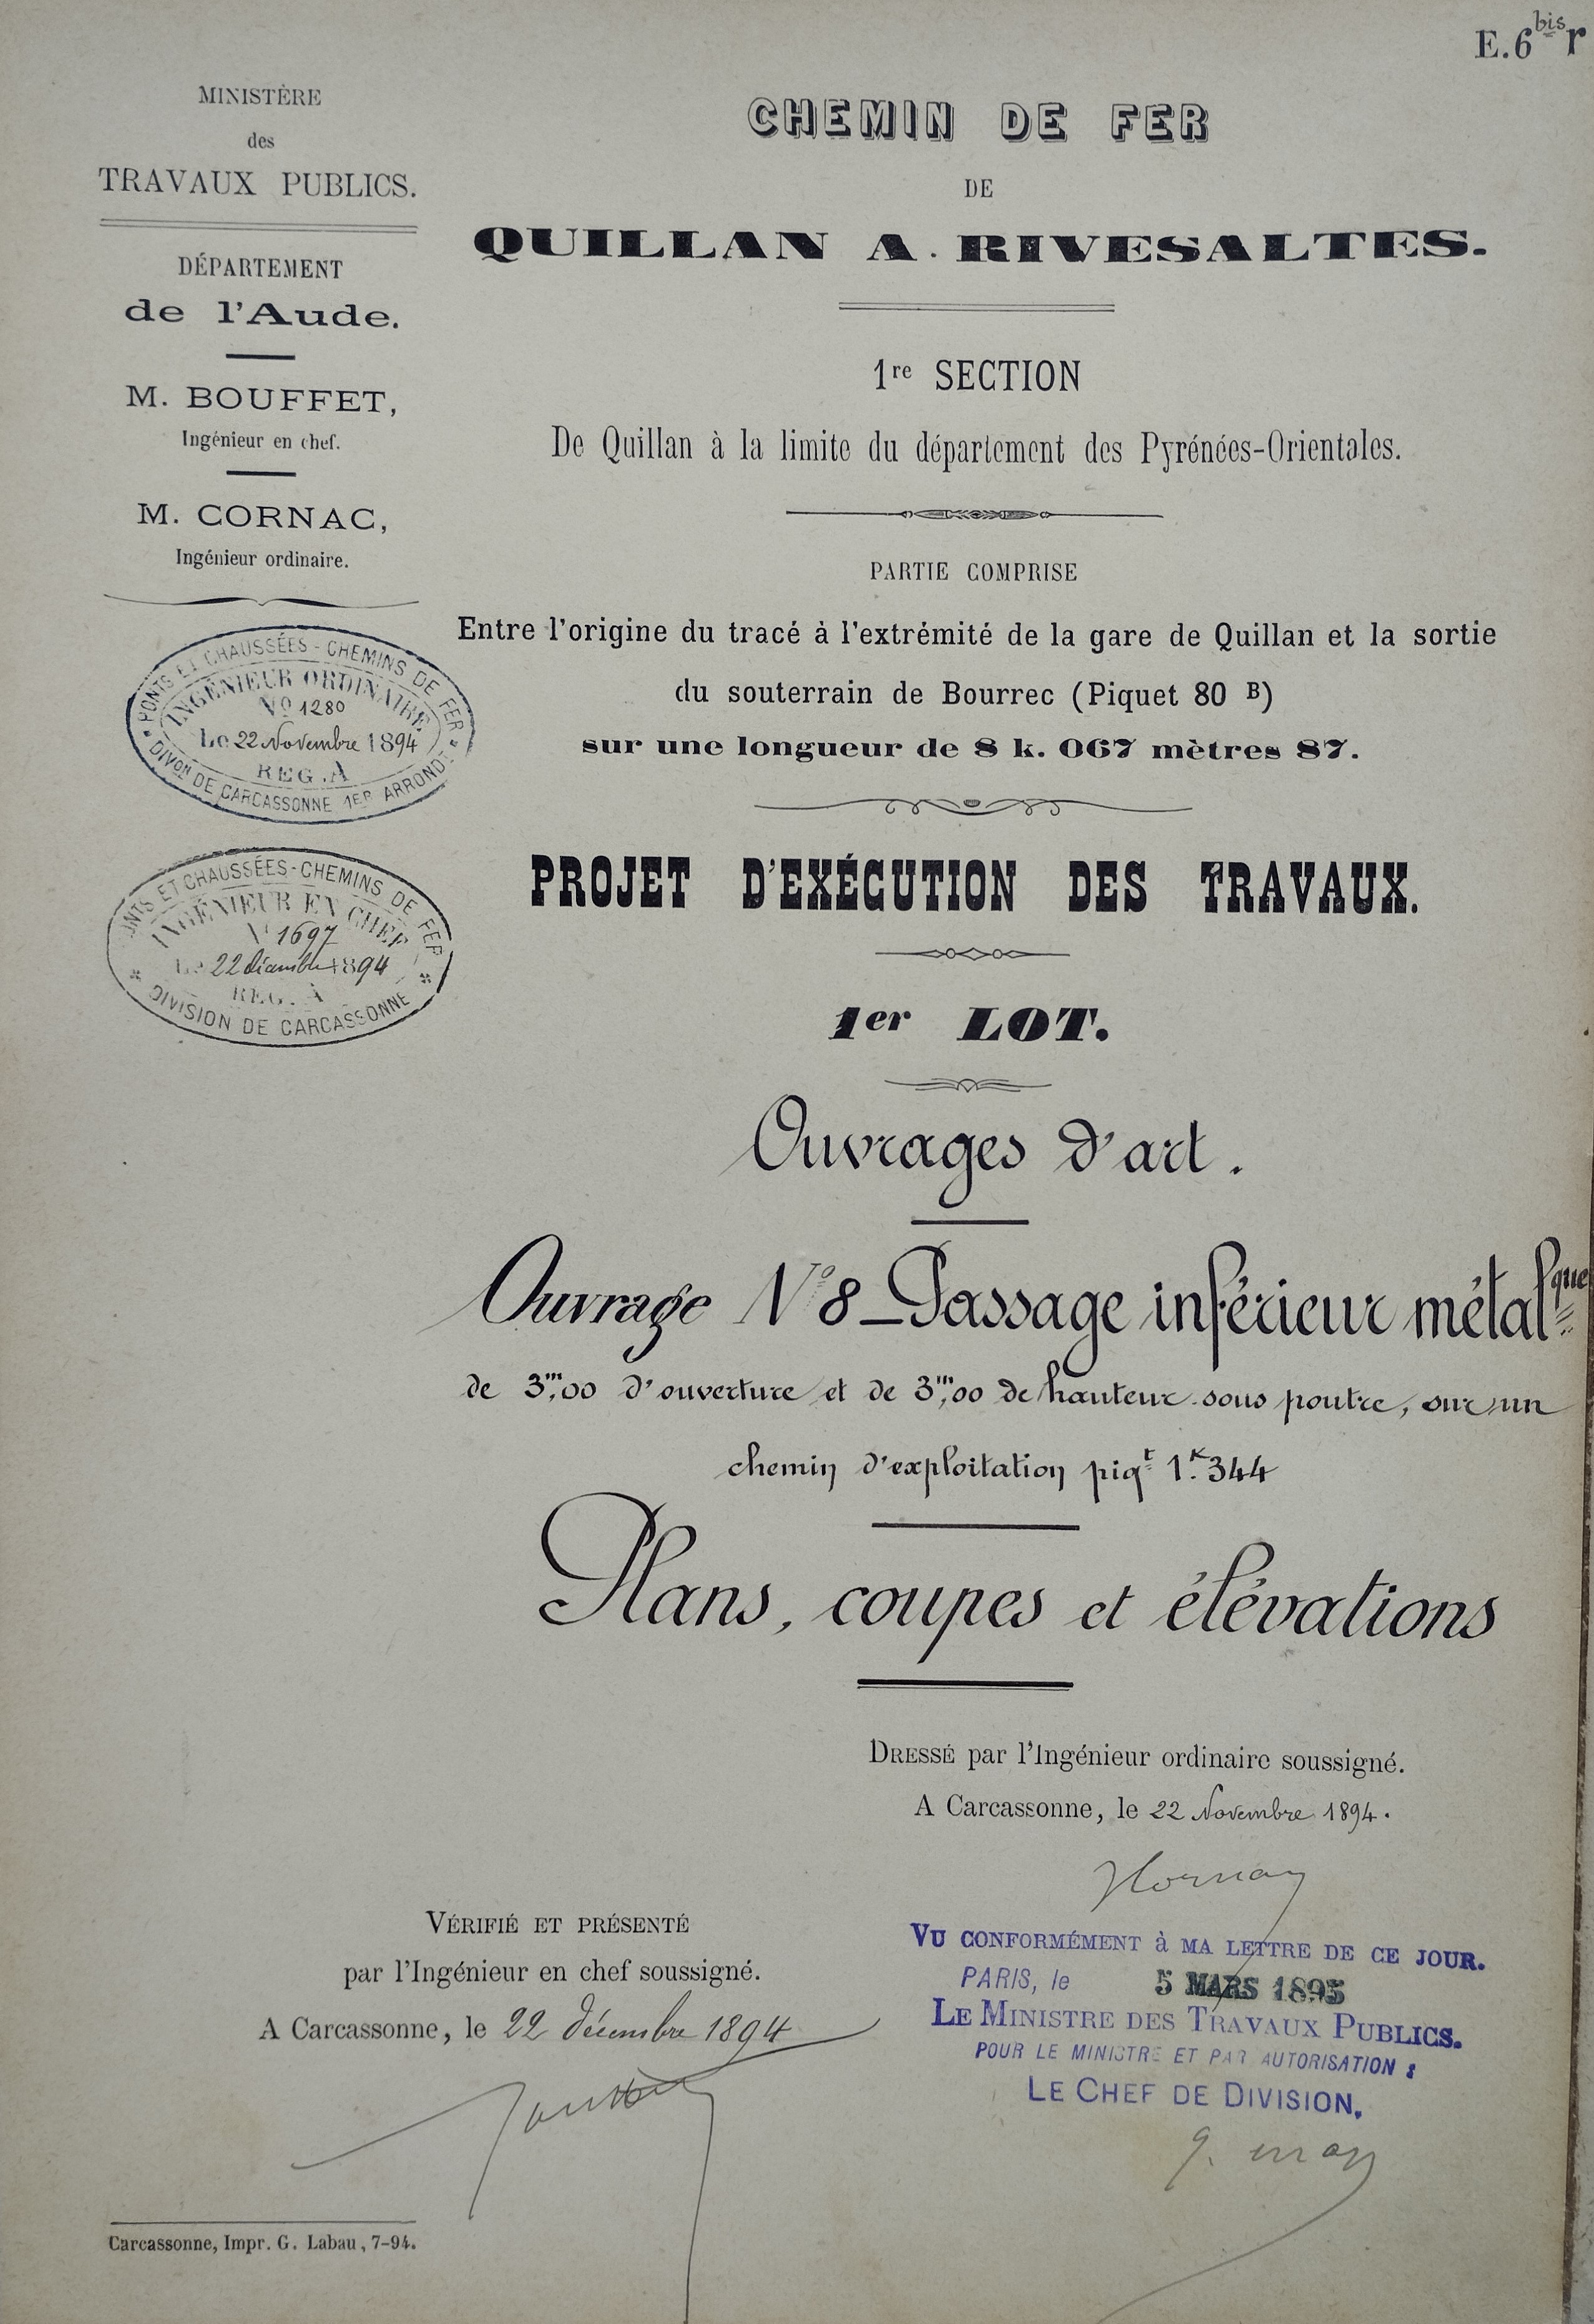 E.6 bis r
MINISTÈRE
des
TRAVAUX PUBLICS.
DÉPARTEMENT
de l'Aude.
M. BOUFFET,
Ingénieur en chef.
M. CORNAC,
Ingénieur ordinaire.
PONTS ET CHAUSSÉES - CHEMINS DE FER
INGÉNIEUR ORDINAIRE
No 1280
Le 22 Novembre 1894
REG. A
DIVon DE CARCASSONNE 1ER ARRONDt
PONTS ET CHAUSSÉES - CHEMINS DE FER
INGÉNIEUR EN CHEF
No 1697
Le 22 décembre 1894
REG. A
DIVISION DE CARCASSONNE
CHEMIN DE FER
DE
QUILLAN A RIVESALTES.
1re SECTION
De Quillan à la limite du département des Pyrénées-Orientales.
PARTIE COMPRISE
Entre l'origine du tracé à l'extrémité de la gare de Quillan et la sortie
du souterrain de Bourrec (Piquet 80 B)
sur une longueur de 8 k. 067 mètres 87.
PROJET D'EXÉCUTION DES TRAVAUX.
1er LOT.
Ouvrages d'art.
Ouvrage No 8 - Passage inférieur métalque
de 3m,00 d'ouverture et de 3m,00 de hauteur sous poutre, sur un
chemin d'exploitation piqt 1k.344
Plans, coupes et élévations
DRESSÉ par l'Ingénieur ordinaire soussigné.
A Carcassonne, le 22 Novembre 1894.
VÉRIFIÉ ET PRÉSENTÉ
par l'Ingénieur en chef soussigné.
A Carcassonne, le 22 décembre 1894
VU CONFORMÉMENT à MA LETTRE DE CE JOUR.
PARIS, le 5 MARS 1895
LE MINISTRE DES TRAVAUX PUBLICS.
POUR LE MINISTRE ET PAR AUTORISATION :
LE CHEF DE DIVISION,
Carcassonne, Impr. G. Labau, 7-94.